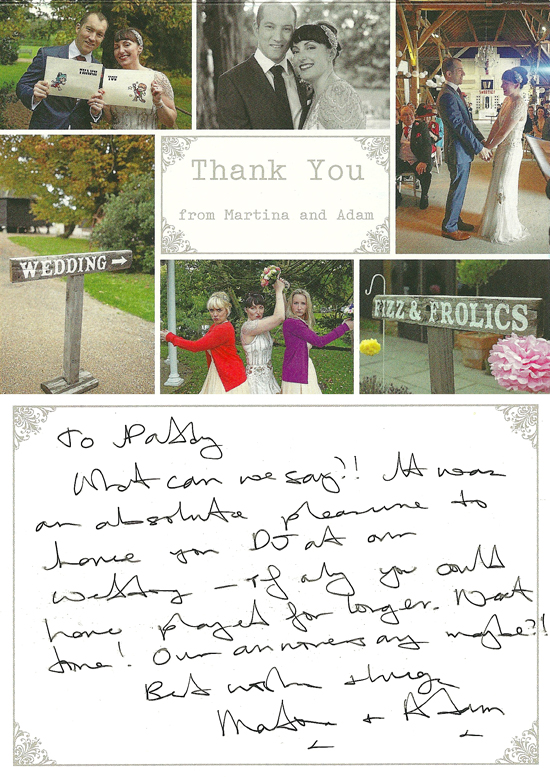 THANK YOU
Thank You
from Martina and Adam
WEDDING →
FIZZ & FROLICS
To Patsy
What can we say?!! It was
an absolute pleasure to
have you DJ at our
wedding – if only you could
have played for longer. Next
time! Our anniversary maybe?!
Best wishes + hugs
Martina + Adam